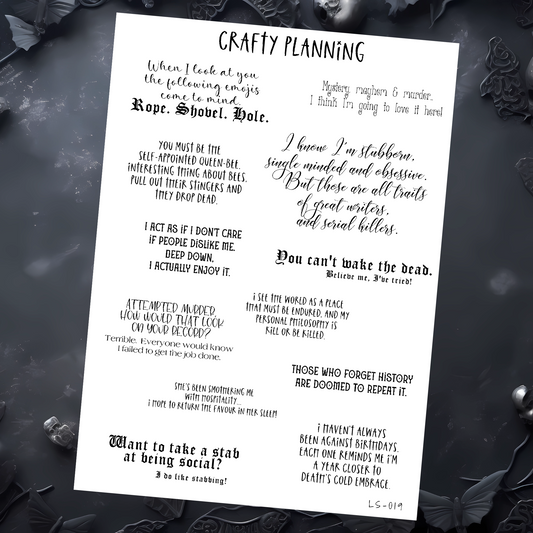 CRAFTY PLANNING
When I look at you
the following emojis
come to mind.
Rope. Shovel. Hole.
Mystery, mayhem & murder...
I think I'm going to love it here!
YOU MUST BE THE
SELF-APPOINTED QUEEN-BEE.
INTERESTING THING ABOUT BEES.
PULL OUT THEIR STINGERS AND
THEY DROP DEAD.
I know I'm stubborn,
single minded and obsessive.
But those are all traits
of great writers,
and serial killers.
I ACT AS IF I DON'T CARE
IF PEOPLE DISLIKE ME.
DEEP DOWN,
I ACTUALLY ENJOY IT.
You can't wake the dead.
Believe me, I've tried!
I SEE THE WORLD AS A PLACE
THAT MUST BE ENDURED, AND MY
PERSONAL PHILOSOPHY IS
KILL OR BE KILLED.
ATTEMPTED MURDER.
HOW WOULD THAT LOOK
ON YOUR RECORD?
Terrible. Everyone would know
I failed to get the job done.
THOSE WHO FORGET HISTORY
ARE DOOMED TO REPEAT IT.
SHE'S BEEN SMOTHERING ME
WITH HOSPITALITY...
I HOPE TO RETURN THE FAVOUR IN HER SLEEP!
Want to take a stab
at being social?
I do like stabbing!
I HAVEN'T ALWAYS
BEEN AGAINST BIRTHDAYS.
EACH ONE REMINDS ME I'M
A YEAR CLOSER TO
DEATH'S COLD EMBRACE.
LS-019